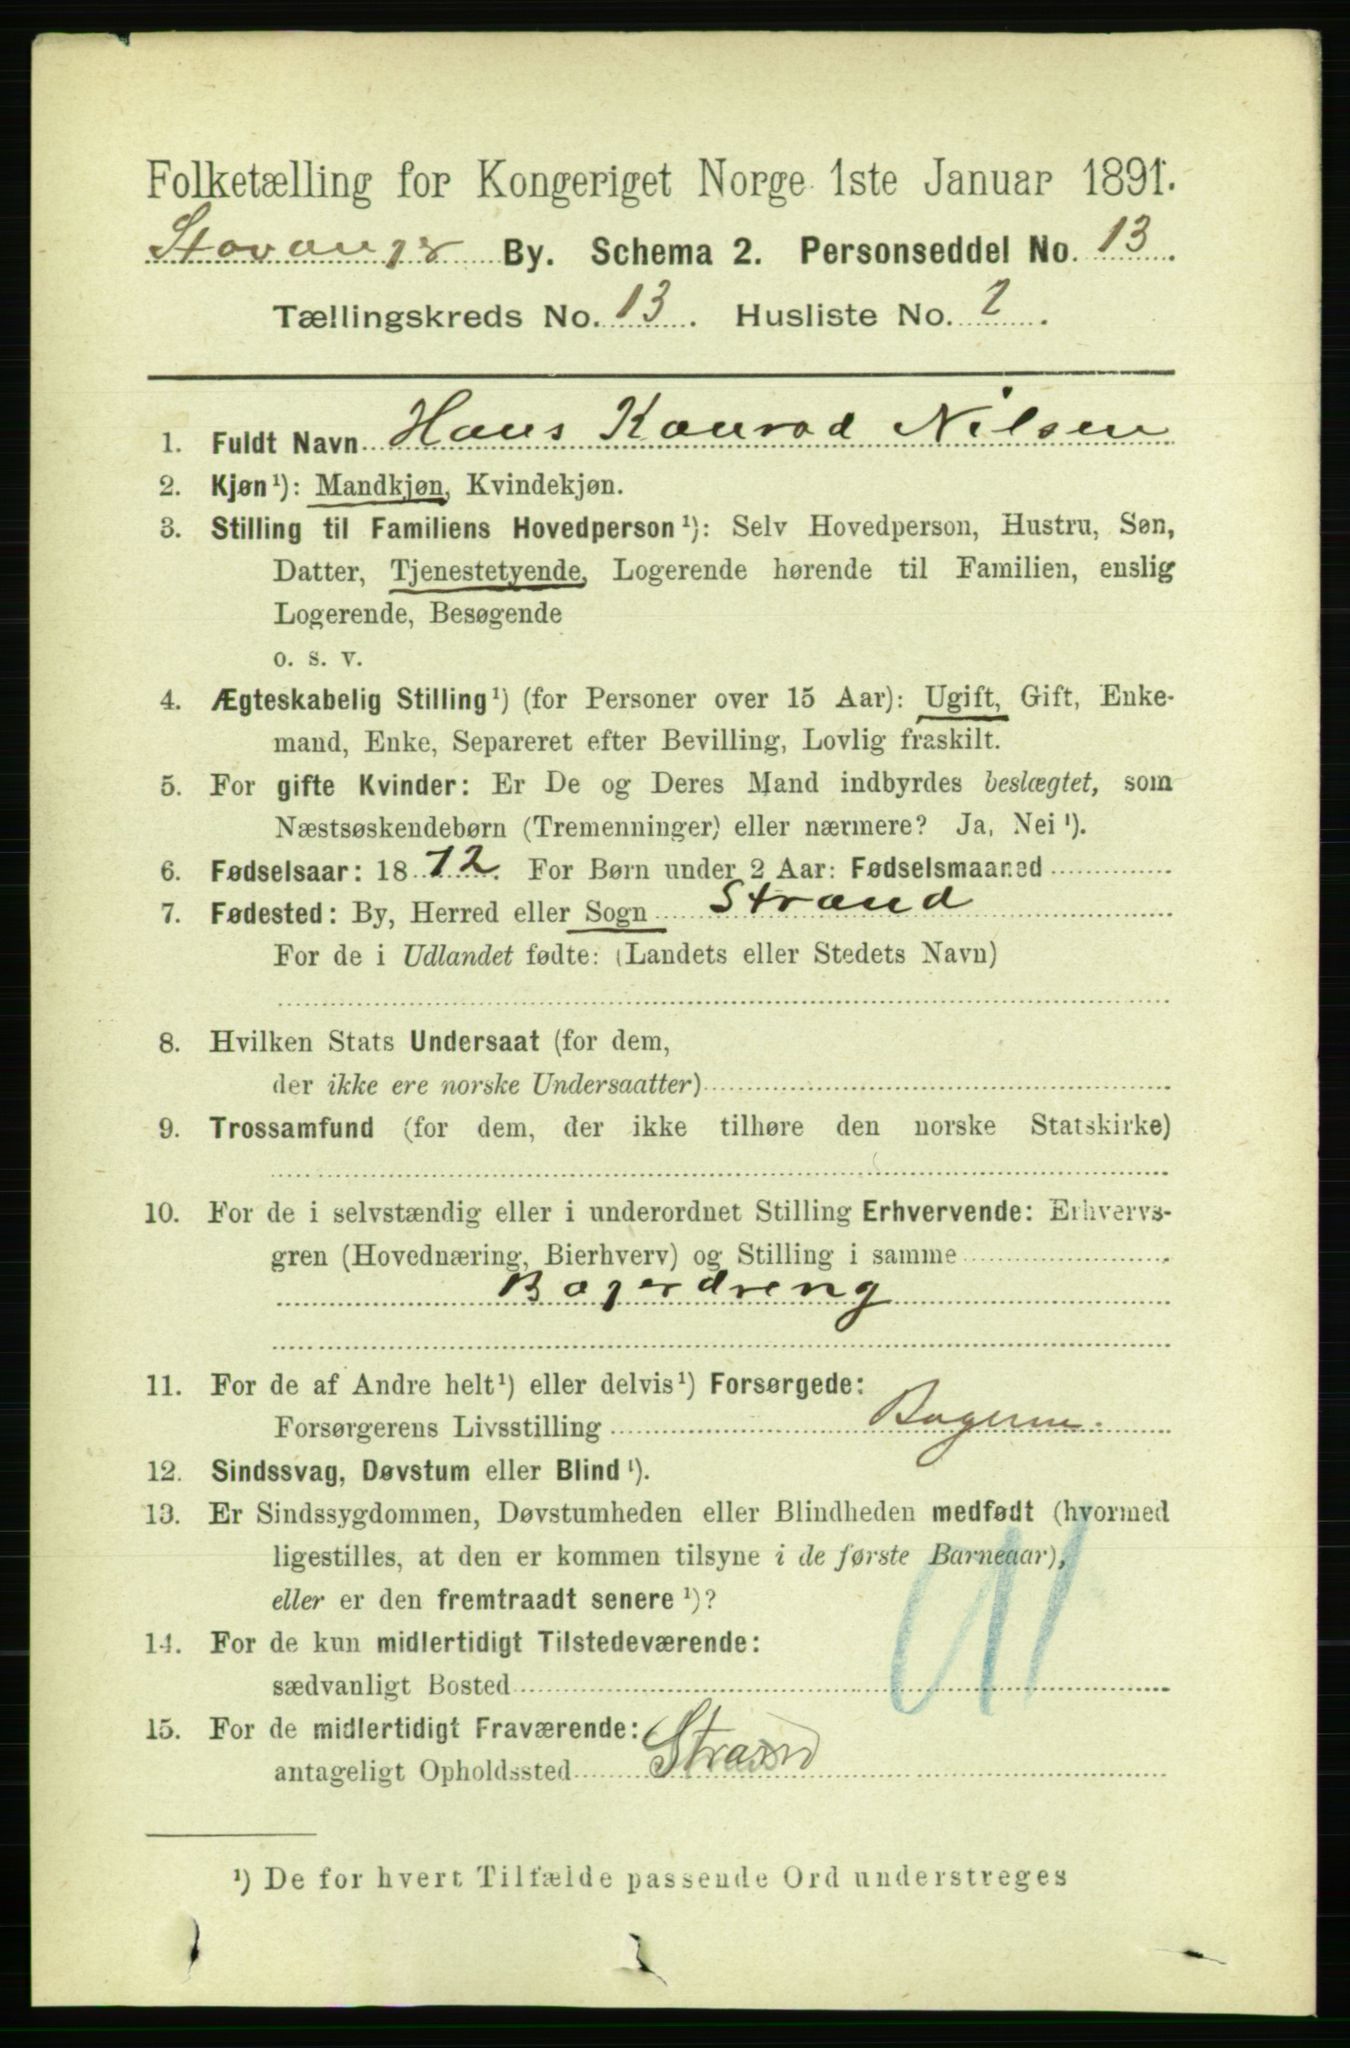 Folketælling for Kongeriget Norge 1ste Januar 1891.
Stavanger By. Schema 2. Personseddel No. 13.
Tællingskreds No. 13. Husliste No. 2.
1. Fuldt Navn Hans Konrad Nilsen
2. Kjøn¹): Mandkjøn, Kvindekjøn.
3. Stilling til Familiens Hovedperson¹): Selv Hovedperson, Hustru, Søn,
Datter, Tjenestetyende, Logerende hørende til Familien, enslig
Logerende, Besøgende
o. s. v.
4. Ægteskabelig Stilling¹) (for Personer over 15 Aar): Ugift, Gift, Enke-
mand, Enke, Separeret efter Bevilling, Lovlig fraskilt.
5. For gifte Kvinder: Er De og Deres Mand indbyrdes beslægtet, som
Næstsøskendebørn (Tremenninger) eller nærmere? Ja, Nei¹).
6. Fødselsaar: 1872. For Børn under 2 Aar: Fødselsmaaned
7. Fødested: By, Herred eller Sogn Strand
For de i Udlandet fødte: (Landets eller Stedets Navn)
8. Hvilken Stats Undersaat (for dem,
der ikke ere norske Undersaatter)
9. Trossamfund (for dem, der ikke tilhøre den norske Statskirke)
10. For de i selvstændig eller i underordnet Stilling Erhvervende: Erhvervs-
gren (Hovednæring, Bierhverv) og Stilling i samme
Bagerdreng
11. For de af Andre helt¹) eller delvis¹) Forsørgede:
Forsørgerens Livsstilling
12. Sindssvag, Døvstum eller Blind¹).
13. Er Sindssygdommen, Døvstumheden eller Blindheden medfødt (hvormed
ligestilles, at den er kommen tilsyne i de første Barneaar),
eller er den fremtraadt senere¹)?
14. For de kun midlertidigt Tilstedeværende:
sædvanligt Bosted
15. For de midlertidigt Fraværende:
antageligt Opholdssted Strand
¹) De for hvert Tilfælde passende Ord understreges